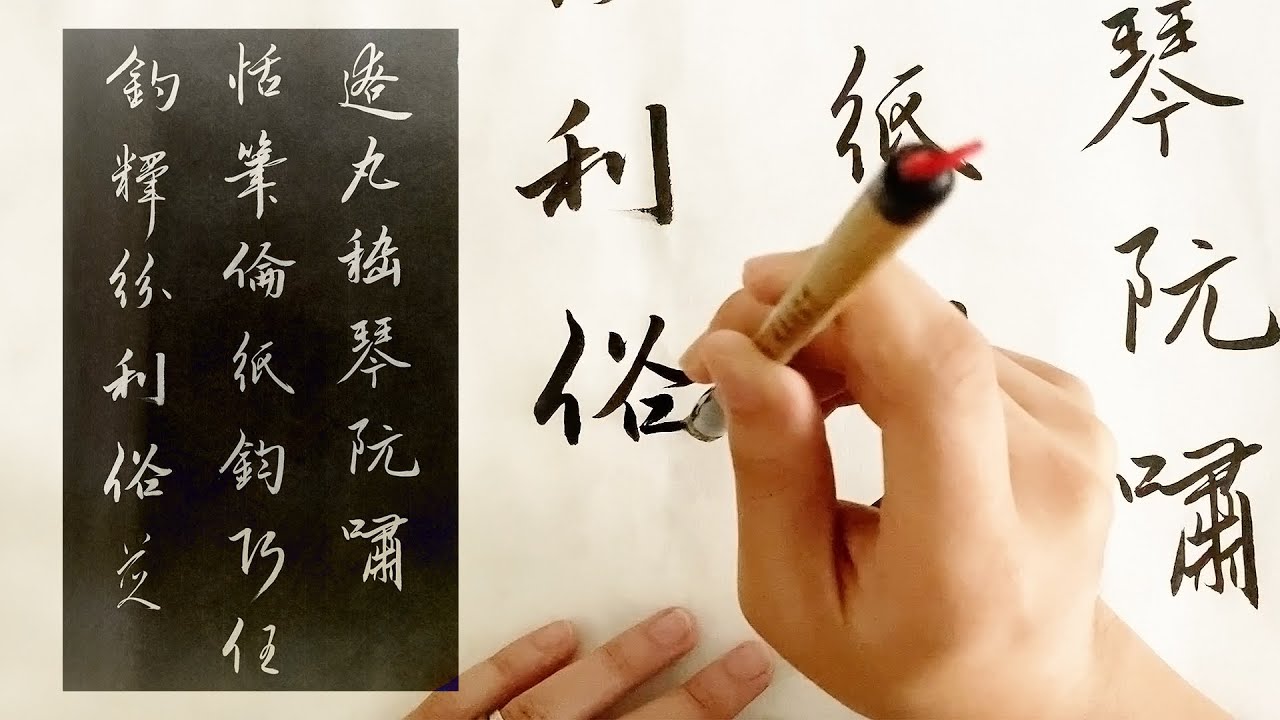 遼丸嵇琴阮嘯
恬筆倫紙鈞巧任
釣釋紛利俗並
琴阮嘯
紙
利俗